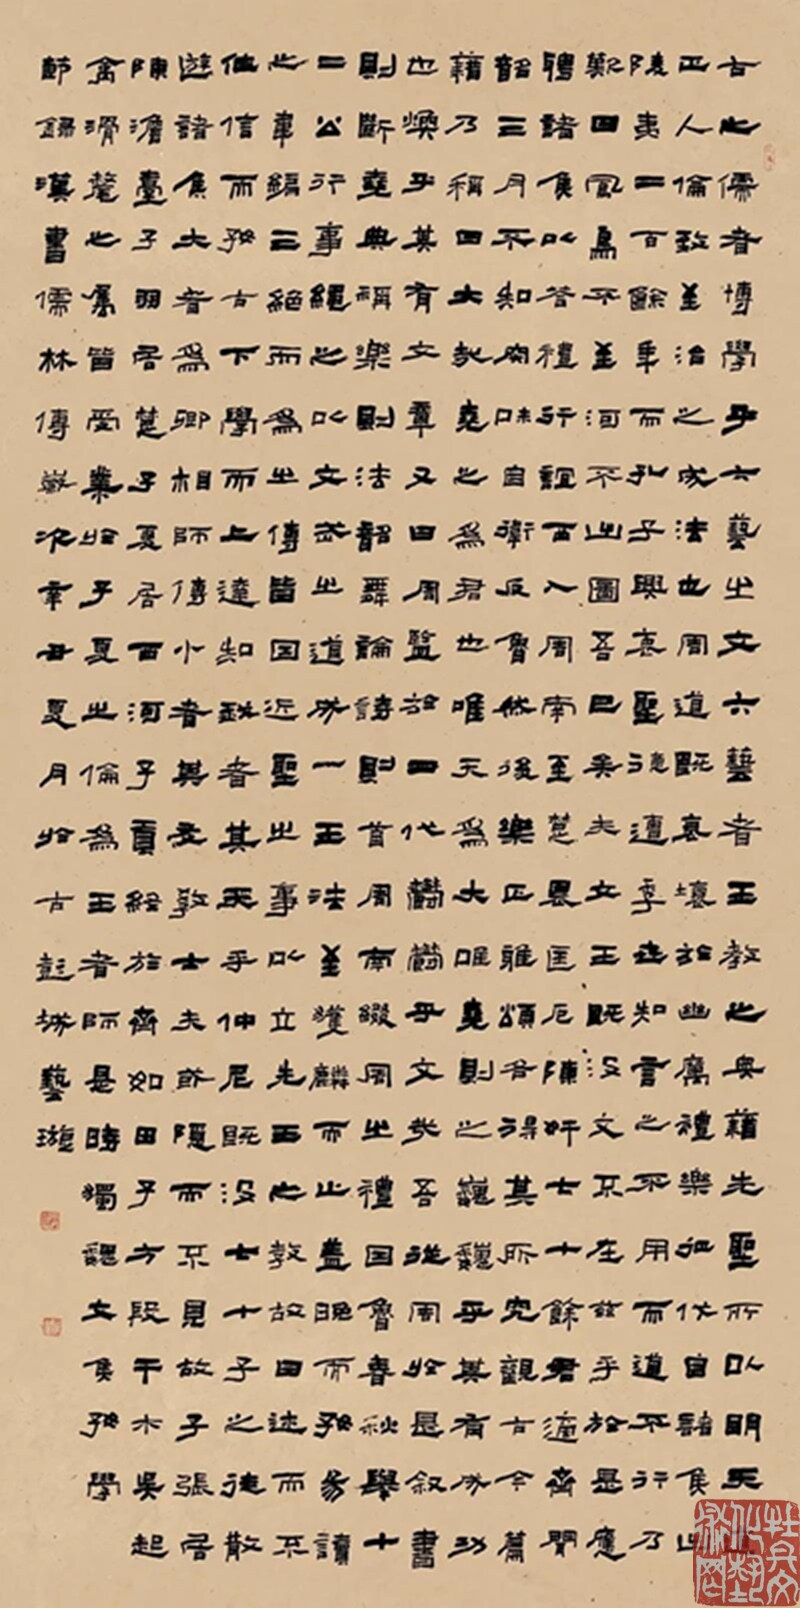 古之儒者博學乎六藝之文六藝者王教之典籍先聖所以明天
正人倫致至治之成法也周道既衰壞於幽厲禮樂征伐自諸侯出
陵夷二百餘年而孔子興衰聖德遭季世知言之不用而道不行乃
歎曰鳳鳥不至河不出圖吾已矣夫文王既沒文不在茲乎於是應
聘諸侯以答禮行誼西入周南至楚畏匡厄陳奸七十餘君適齊聞
韶三月不知肉味自衛反魯然後樂正雅頌各得其所究觀古今篇
籍乃稱曰大哉堯之為君也唯天為大唯堯則之巍巍乎其有成功
也煥乎其有文章又曰周監於二代鬱鬱乎文哉吾從周於是敘書
則斷堯典稱樂則法韶舞論詩則首周南綴周之禮因魯春秋舉十
二公行事繩之以文武之道成一王法至獲麟而止蓋晚而好易讀
之韋編三絕而為之傳皆因近聖之事以立先王之教故曰述而不
作信而好古下學而上達知我者其天乎仲尼既沒七十子之徒散
遊諸侯大者為卿相師傅小者其友教士夫或隱而不見故子張居
陳澹臺子羽居楚子夏居西河子貢終於齊如田子方段干木吳起
禽滑氂之屬皆受業於子夏之倫為王者師是時獨魏文侯好學
節錄漢書儒林傳歲次辛丑夏月於古彭城藝璇